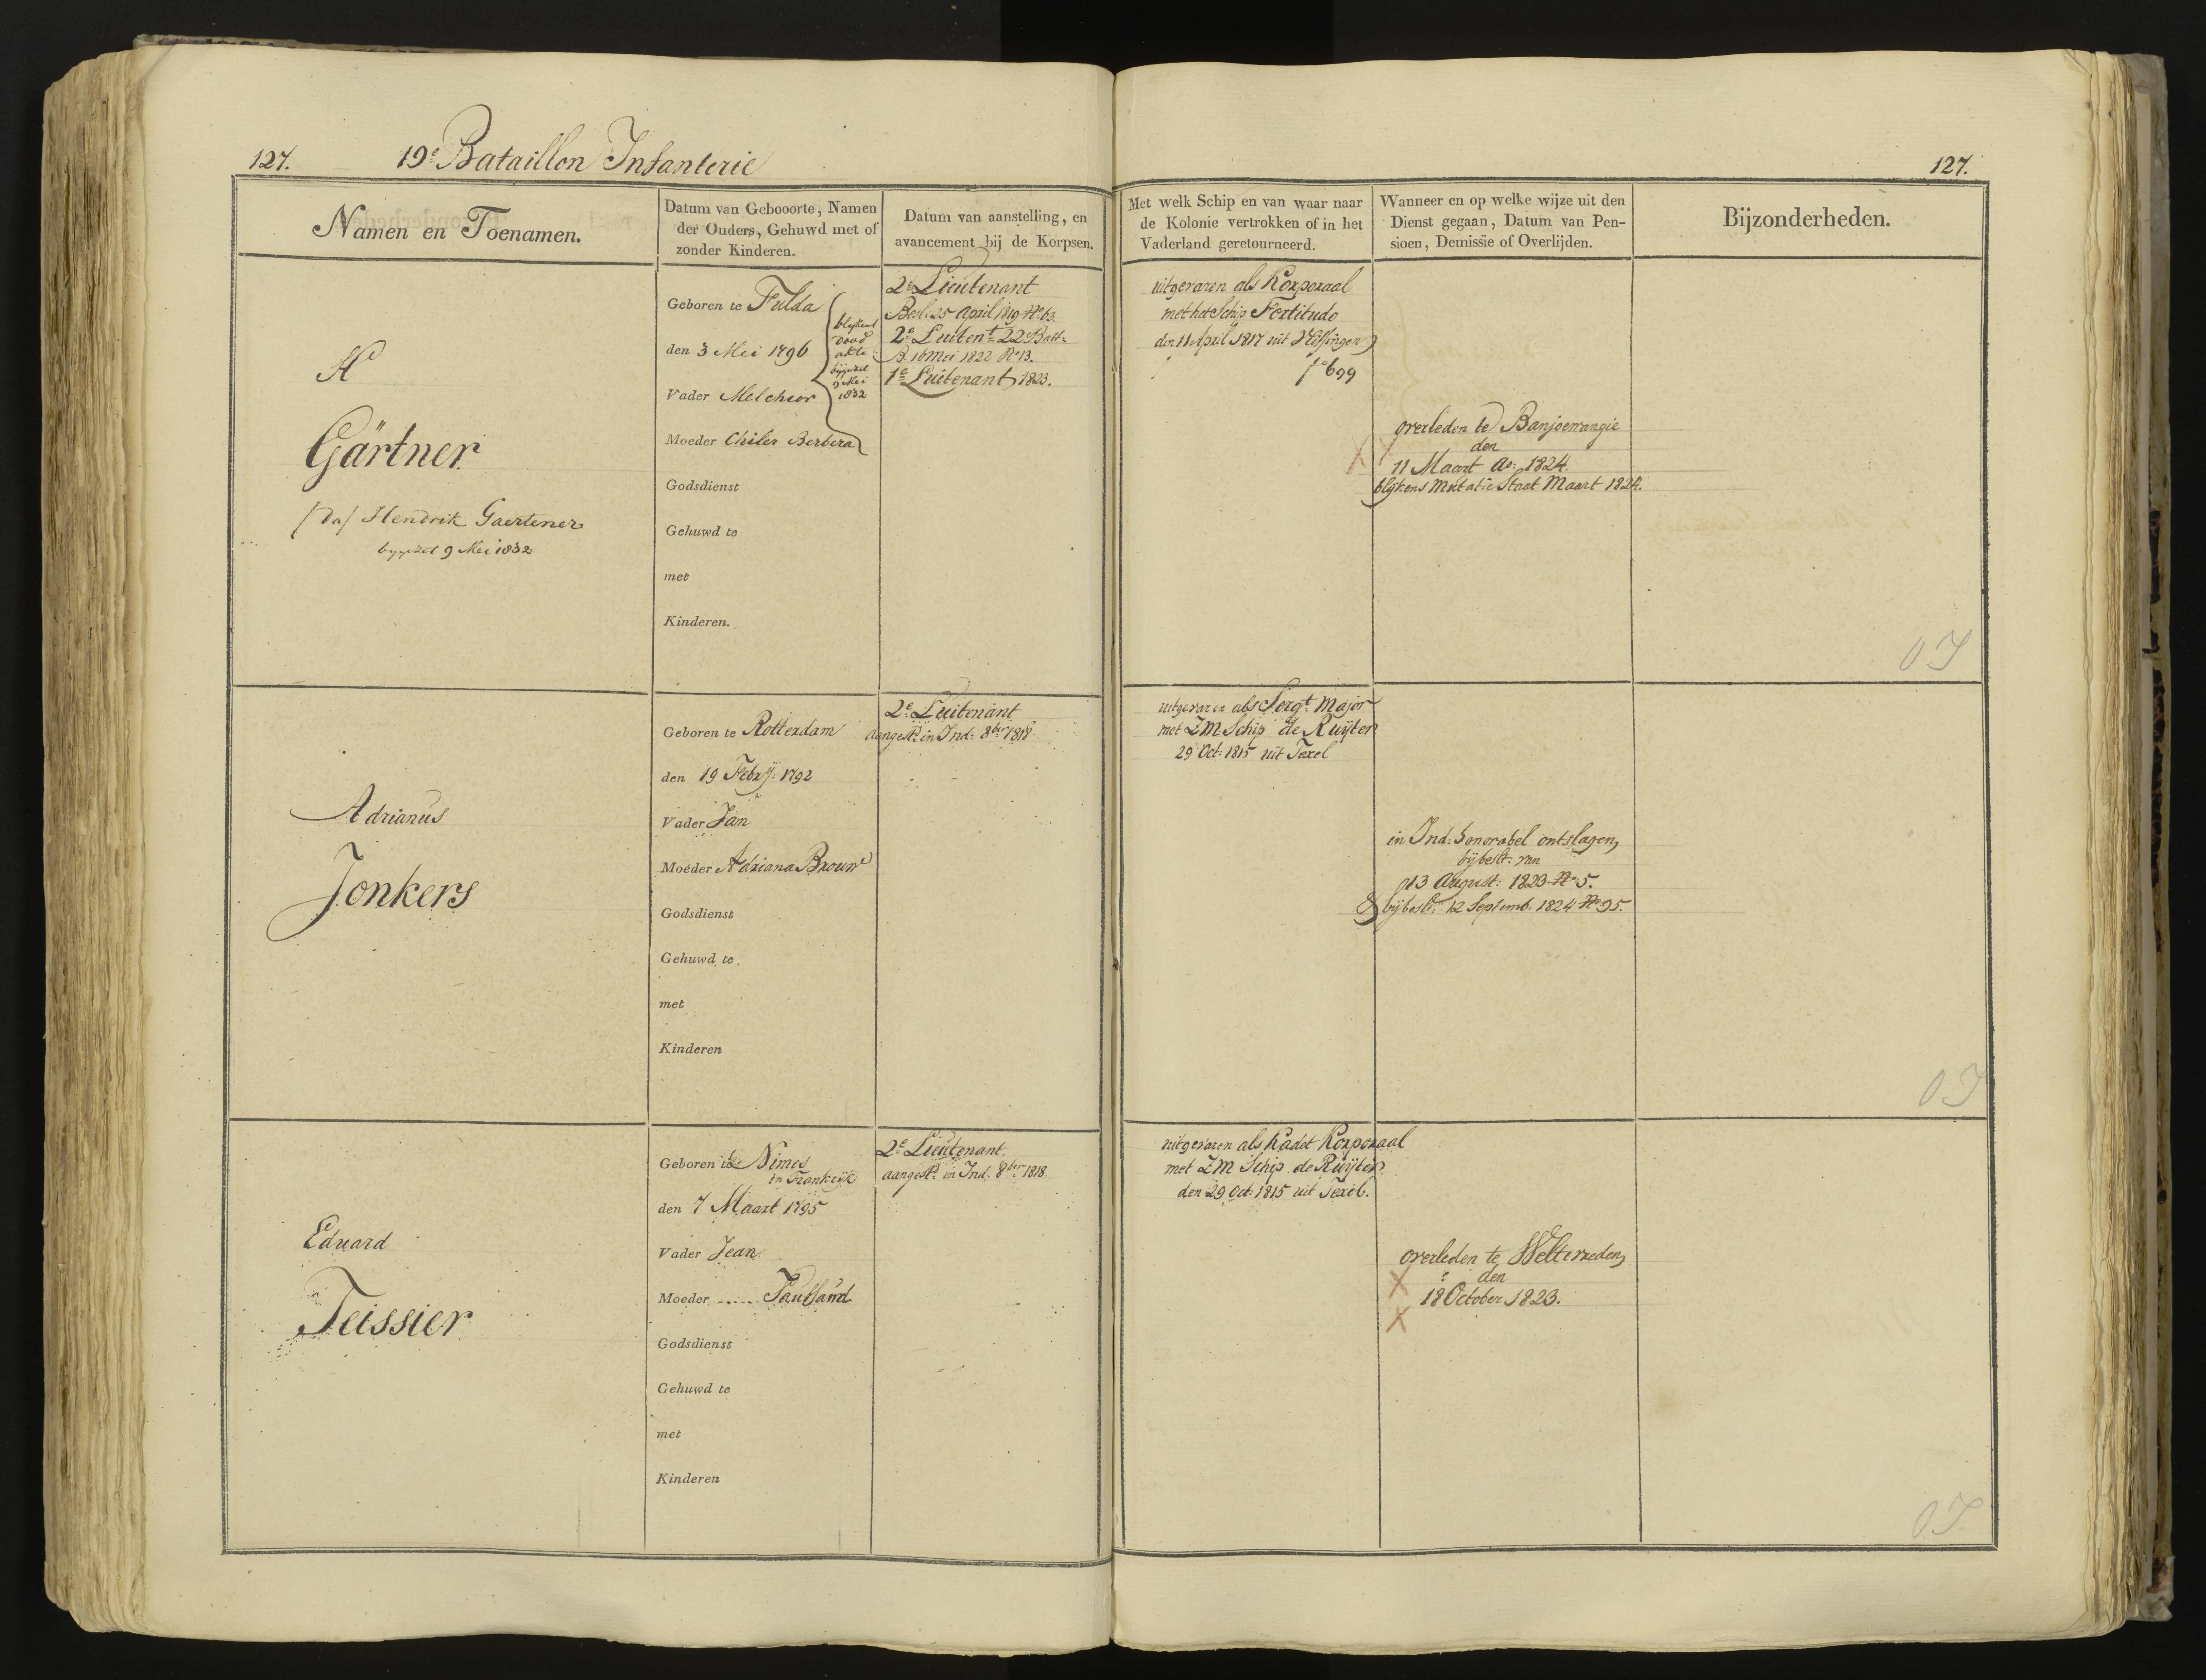 127.
19e Bataillon Infanterie
127.
Namen en Toenamen.
Datum van Gebooorte, Namen
der Ouders, Gehuwd met of
zonder Kinderen.
Datum van aanstelling, en
avancement bij de Korpsen.
Met welk Schip en van waar naar
de Kolonie vertrokken of in het
Vaderland geretourneerd.
Wanneer en op welke wijze uit den
Dienst gegaan, Datum van Pen-
sioen, Demissie of Overlijden.
Bijzonderheden.
H
Gärtner
Hendrik Gaertener
bijgezet 9 Mei 1832
Geboren te Fulda
den 3 Mei 1796
Vader Melchior
Moeder Chiler Berbera
Godsdienst
Gehuwd te
met
Kinderen.
blijkens
akte
bijgezet
9 Mei
1832
2e Lieutenant
Besl: 25 april 1819 No 63.
2e Luitent 22e Batt:
B. 16 Mei 1822 No 13.
1e Luitenant 1823.
uitgevaren als Korporaal
met het Schip Fortitudo
den 11 April 1817 uit Vlissingen
fo 699
overleden te Banjoewangie
den
11 Maart Ao: 1824.
blijkens Mutatie Staat Maart 1824.
OI
Adrianus
Jonkers
Geboren te Rotterdam
den 19 Febrij: 1792
Vader Jan
Moeder Adriana Brouwe
Godsdienst
Gehuwd te
met
Kinderen
2e Luitenant
aangest: in Ind: 8br 1818
uitgevaren als Sergt Major
met ZM Schip de Ruijter
29 Oct: 1815 uit Texel
in Ind: honorabel ontslagen,
bij beslt: van
13 August: 1823 No 5.
& bij beslt: 12 Septemb. 1824 No 95.
OI
Eduard
Teissier
Geboren te Nimes
in Frankrijk
den 7 Maart 1795
Vader Jean
Moeder .....
Godsdienst
Gehuwd te
met
Kinderen
2e Lieutenant.
aangest: in Ind. 8ber 1818
uitgevaren als Kadet Korporaal
met ZM Schip de Ruijter
den 29 Oct: 1815 uit Texel.
overleden te Weltevreden,
den
18 October 1823.
OI